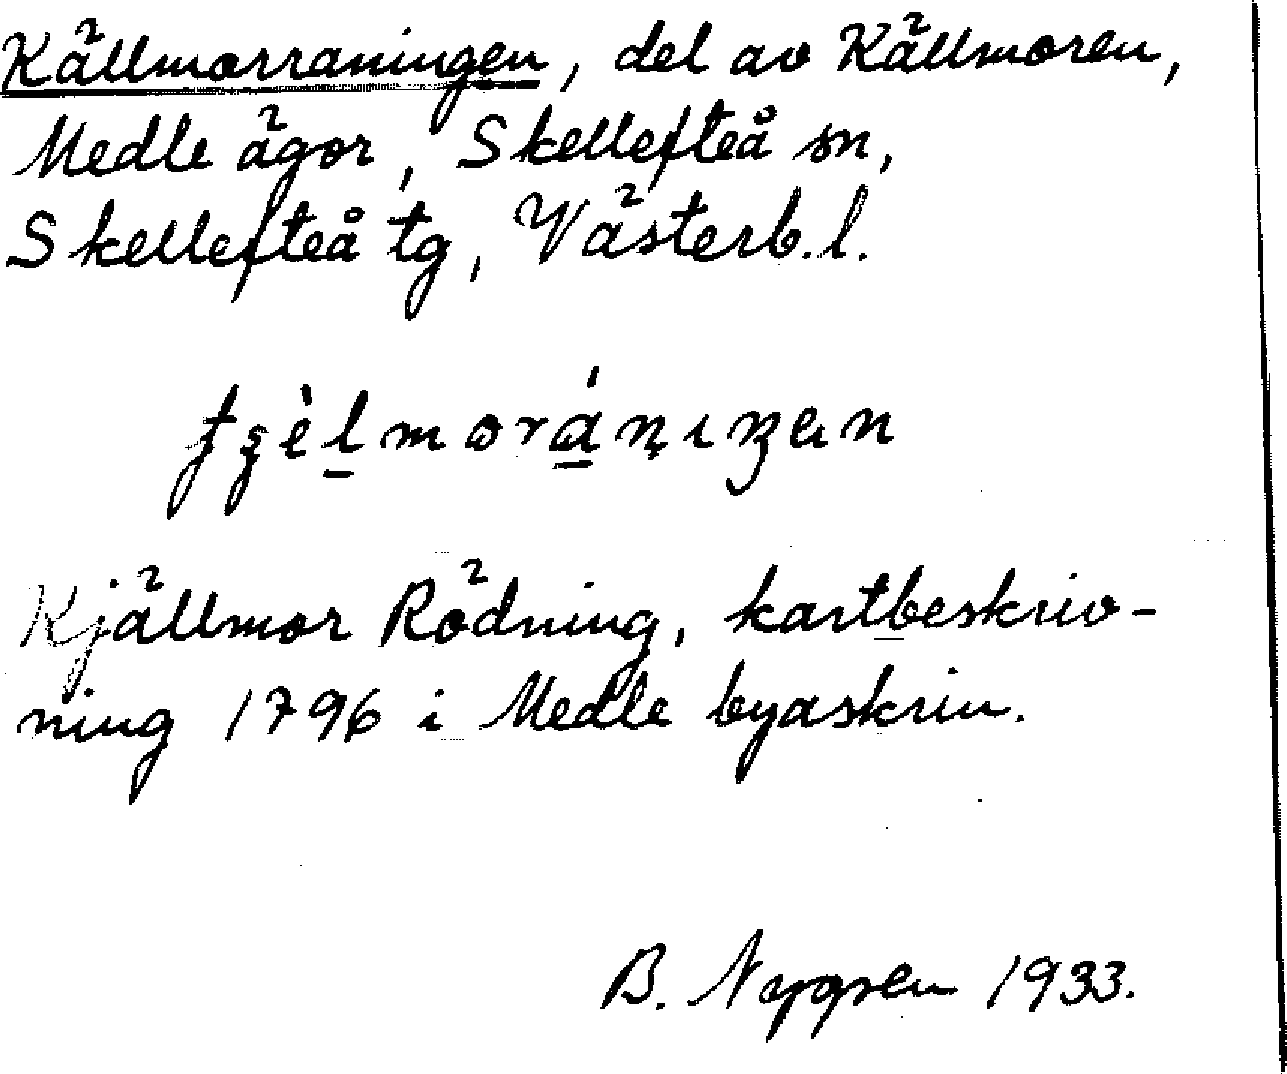 Källmorraningen, del av Källmoren,
Medle ägor, Skellefteå sn,
Skellefteå tg, Västerb. l.
Kjällmor Rödning, kartbeskriv-
ning 1796 i Medle byaskrin.
B. Nygren 1933.